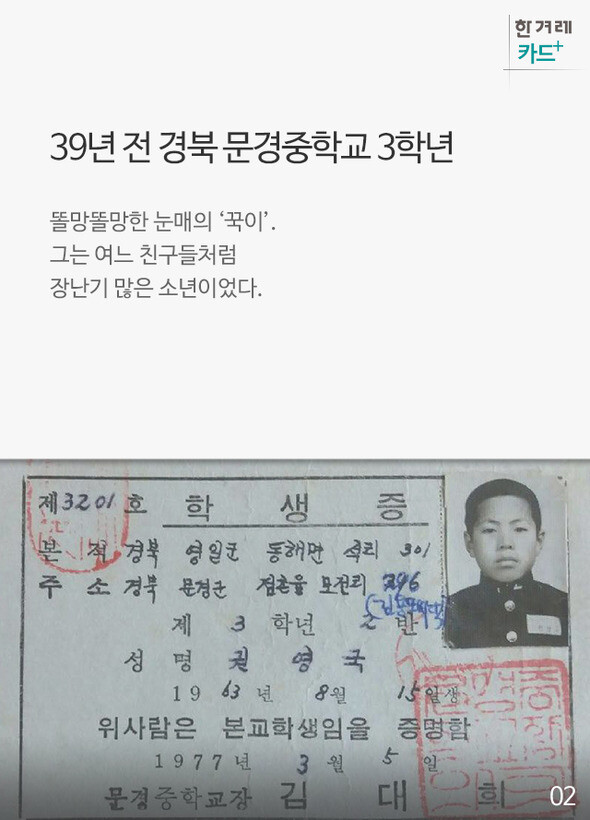 한겨레
카드+
39년 전 경북 문경중학교 3학년
똘망똘망한 눈매의 ‘꾹이’.
그는 여느 친구들처럼
장난기 많은 소년이었다.
제3201호 학생증
본적 경북 영일군 동해면 석리 301
주소 경북 문경군 점촌읍 모전리 296
제 3 학년 2 반
성명 권영국
1963년 8월 15일생
위사람은 본교학생임을 증명함
1977년 3월 5일
문경중학교장 김대희
02